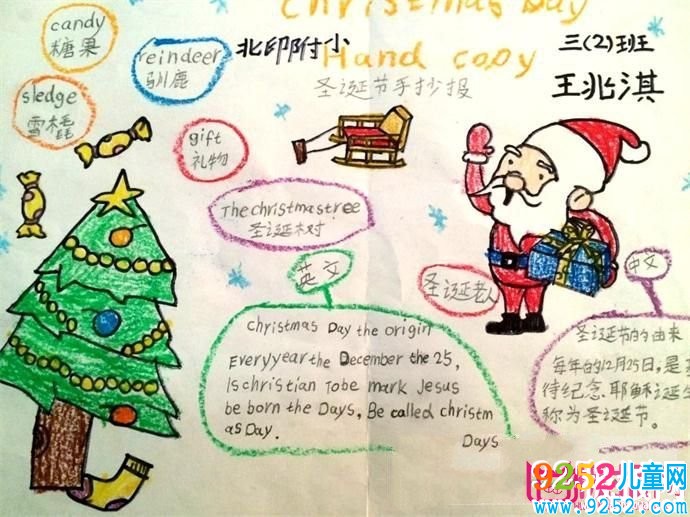 Christmas Day
Hand copy
圣诞节手抄报
北印附小
三(2)班
王兆淇
candy
糖果
reindeer
驯鹿
sledge
雪橇
gift
礼物
The christmas tree
圣诞树
英文
Christmas Day the origin
Every year the December the 25,
Is christian To be mark Jesus
be born the Days, Be called christm
as Day.
Days
圣诞老人
中文
圣诞节的由来
每年的12月25日,是
待纪念耶稣诞生
称为圣诞节。
9252儿童网
www.9252.com